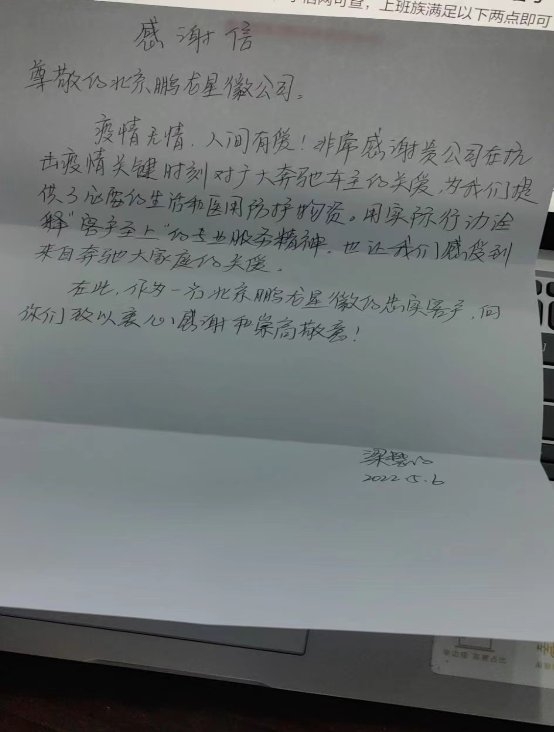 上班族满足以下两点即可
感谢信
尊敬的北京鹏龙星徽公司。
疫情无情,人间有爱!非常感谢贵公司在抗
击疫情关键时刻对广大奔驰车主的关爱,为我们提
供了必要的生活和医用防护物资。用实际行动诠
释"客户至上"的专业服务精神,也让我们感受到
来自奔驰大家庭的关爱。
在此,作为一名北京鹏龙星徽的忠实客户,向
你们致以衷心感谢和崇高敬意!
梁
2022.5.6